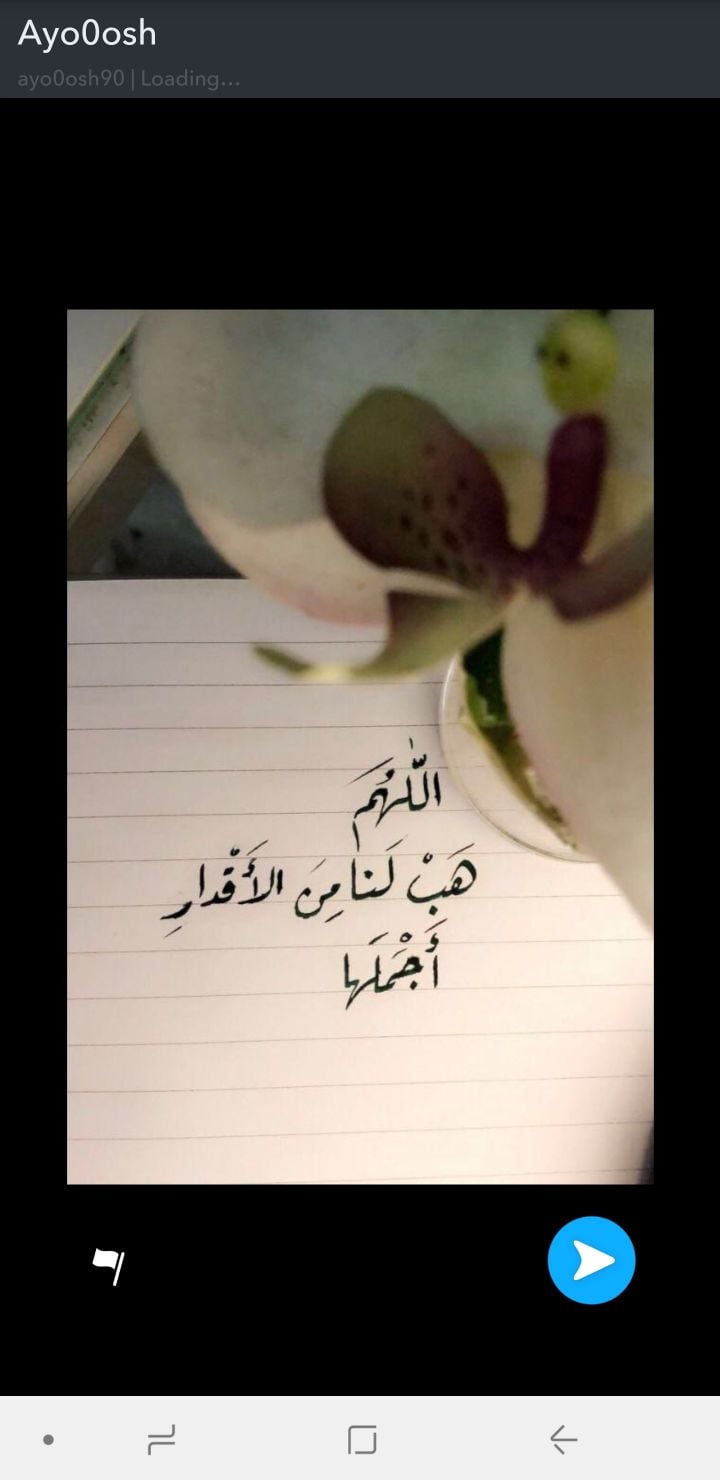 Ayo0osh
ayo0osh90 | Loading...
اللّٰهُمَّ
هَبْ لَنا مِنَ الأَقْدارِ
أَجْمَلَها